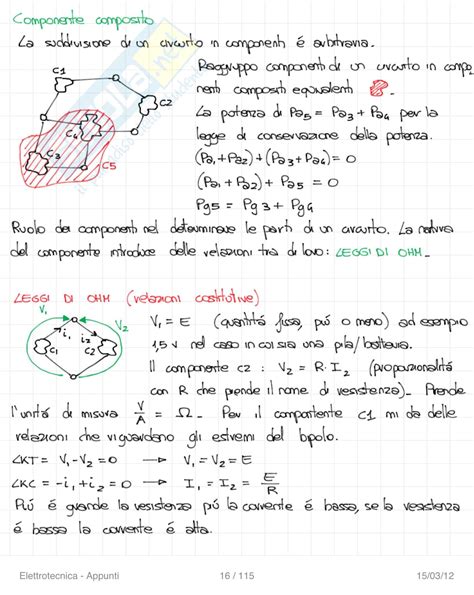 Componente composito
La suddivisione di un circuito in componenti é arbitraria.
Raggruppo componenti di un circuito in compo
nenti compositi equivalenti
La potenza di Pa5 = Pa3 + Pa4 per la
legge di conservazione della potenza.
(Pa1 + Pa2) + (Pa3 + Pa4) = 0
(Pa1 + Pa2) + Pa5 = 0
Pg5 = Pg3 + Pg4
C1
C2
C4
C3
C5
Ruolo dei componenti nel determinare le parti di un circuito. La natura
del componente introduce delle relazioni tra di loro: LEGGI DI OHM.
LEGGI DI OHM (relazioni costitutive)
V1 = E (quantitá fissa, piú o meno) ad esempio
1,5 V nel caso in cui sia una pila/batteria.
Il componente C2: V2 = R·I2 (proporzionalitá
con R che prende il nome di resistenza). Prende
V1
V2
i1
i2
C1
C2
l'unitá di misura V/A = Ω. Per il componente C1 mi da delle
relazioni che riguardano gli estremi del bipolo.
LKT = V1 - V2 = 0 → V1 = V2 = E
LKC = -i1 + i2 = 0 → I1 = I2 = E/R
Piú é grande la resistenza piú la corrente é bassa, se la resistenza
é bassa la corrente é alta.
Elettrotecnica - Appunti
16 / 115
15/03/12